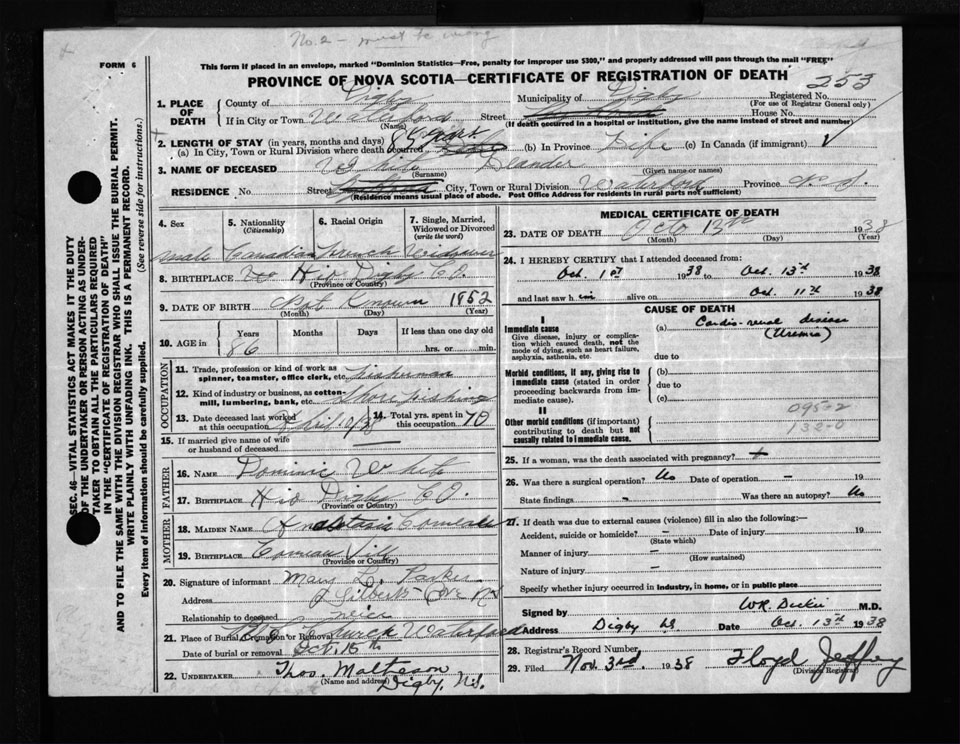 No. 2 - must be wrong
FORM 6
This form if placed in an envelope, marked "Dominion Statistics—Free, penalty for improper use $300," and properly addressed will pass through the mail "FREE"
PROVINCE OF NOVA SCOTIA—CERTIFICATE OF REGISTRATION OF DEATH
253
1. PLACE OF DEATH County of Digby Municipality of Digby Registered No.
(For use of Registrar General only)
If in City or Town Waterford Street House No.
(Name) (If death occurred in a hospital or institution, give the name instead of street and number)
2. LENGTH OF STAY (in years, months and days)
(a) In City, Town or Rural Division where death occurred 85 years (b) In Province Life (c) In Canada (if immigrant)
3. NAME OF DECEASED White Leander
(Surname) (Given name or names)
RESIDENCE No. Street City, Town or Rural Division Waterford Province N. S.
(Residence means usual place of abode. Post Office Address for residents in rural parts not sufficient)
4. Sex 5. Nationality (Citizenship) 6. Racial Origin 7. Single, Married, Widowed or Divorced (write the word)
male Canadian French Widower
8. BIRTHPLACE Digby Co.
(Province or Country)
9. DATE OF BIRTH Not Known 1852
(Month) (Day) (Year)
10. AGE in Years Months Days If less than one day old
86 hrs. or min.
OCCUPATION
11. Trade, profession or kind of work as spinner, teamster, office clerk, etc. Fisherman
12. Kind of industry or business, as cotton-mill, lumbering, bank, etc. Shore fishing
13. Date deceased last worked at this occupation April 14. Total yrs. spent in this occupation 70
15. If married give name of wife or husband of deceased
FATHER
16. NAME Dominic White
17. BIRTHPLACE Digby Co.
(Province or Country)
MOTHER
18. MAIDEN NAME
19. BIRTHPLACE Comeau
(Province or Country)
20. Signature of informant Mary L.
Address Gilberts Cove NS
Relationship to deceased neice
21. Place of Burial, Cremation or Removal Church Waterford
Date of burial or removal Oct 15th
22. UNDERTAKER Thos. Matteson
(Name and address)
Digby, N.S.
MEDICAL CERTIFICATE OF DEATH
23. DATE OF DEATH Octo 13th 1938
(Month) (Day) (Year)
24. I HEREBY CERTIFY that I attended deceased from:
Oct. 1st 1938 to Oct. 13th 1938
and last saw him alive on Oct. 11th 1938
CAUSE OF DEATH
I
Immediate cause (a) Cardio-renal disease
Give disease, injury or complication which caused death, not the mode of dying, such as heart failure, asphyxia, asthenia, etc. (Uremia)
due to
Morbid conditions, if any, giving rise to immediate cause (stated in order proceeding backwards from immediate cause). (b)
due to
(c)
II
Other morbid conditions (if important) contributing to death but not causally related to immediate cause.
095-2
132-0
25. If a woman, was the death associated with pregnancy?
26. Was there a surgical operation? No Date of operation - 19
State findings - Was there an autopsy? No
27. If death was due to external causes (violence) fill in also the following:—
Accident, suicide or homicide? - Date of injury 19
(State which)
Manner of injury -
(How sustained)
Nature of injury -
Specify whether injury occurred in industry, in home, or in public place
Signed by W.R. Dickie M.D.
Address Digby NS Date Oct. 13th 1938
28. Registrar's Record Number
29. Filed Nov. 3rd. 1938 Floyd Jeffrey
(Division Registrar)
SEC. 46—VITAL STATISTICS ACT MAKES IT THE DUTY
OF THE UNDERTAKER OR PERSON ACTING AS UNDER-
TAKER TO OBTAIN ALL THE PARTICULARS REQUIRED
IN THE "CERTIFICATE OF REGISTRATION OF DEATH"
AND TO FILE THE SAME WITH THE DIVISION REGISTRAR WHO SHALL ISSUE THE BURIAL PERMIT.
WRITE PLAINLY WITH UNFADING INK. THIS IS A PERMANENT RECORD.
Every item of information should be carefully supplied. (See reverse side for instructions.)